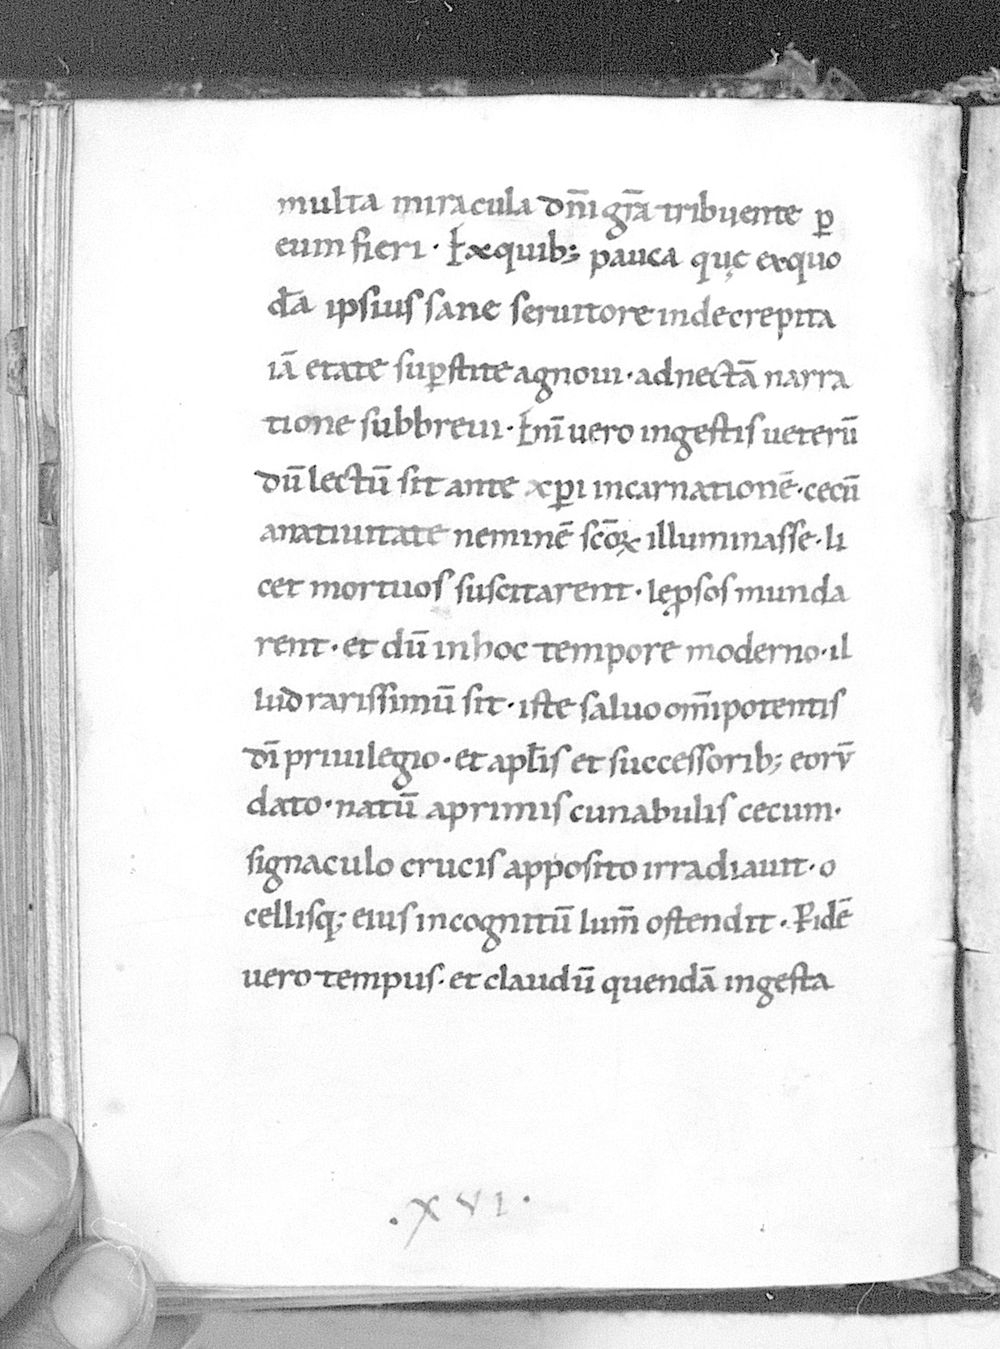 multa miracula dn̄i gr̄a tribuente ꝑ
eum fieri · Exquib; pauca quę exquo
dā ipsius sane seruitore indecrepita
iā etate suꝑstite agnoui · adnectā narra
tione subbreui · Enī uero ingestis ueterū
dū lectū sit ante xp̄i incarnationē · cecū
anatiuitate neminē sc̄oꝝ illuminasse · li
cet mortuos suscitarent · lęprosos munda
rent · et dū inhoc tempore moderno · il
lud rarissimū sit · iste saluo om̄ipotentis
dī priuilegio · et apl̄is et successorib; eorū
dato · natū aprimis cunabulis cecum ·
signaculo crucis apposito irradiauit · o
cellisq; eius incognitū lum̄ ostendit · Ꝑidē
uero tempus · et claudū quendā ingesta
· XVI ·